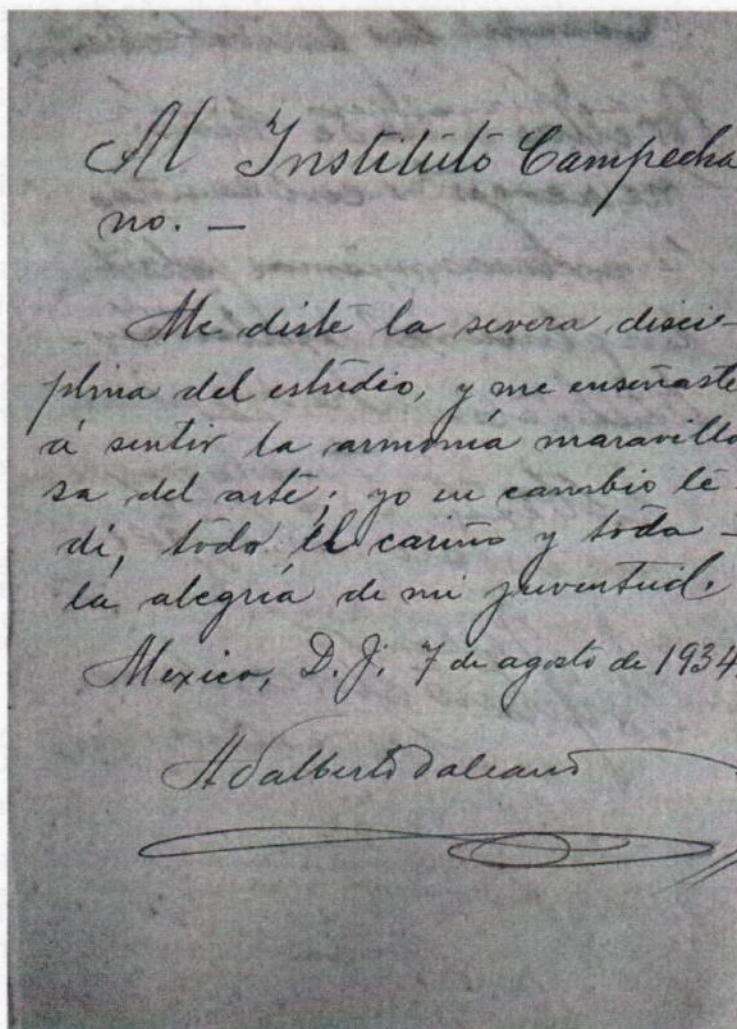 Al Instituto Campecha
no. —
Me diste la severa disci-
plina del estudio, y me enseñaste
á sentir la armonía maravillo
sa del arte; yo en cambio te
dí, todo el cariño y toda —
la alegría de mi juventud.
Mexico, D. F. 7 de agosto de 1934.
Adalberto Galeano